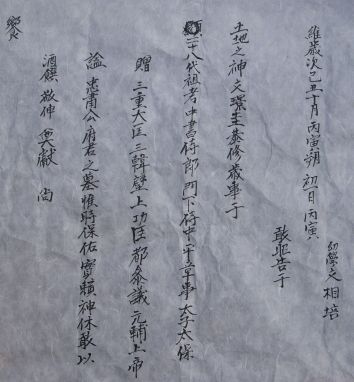 維歲次己丑十月丙寅朔初一日丙寅
幼學文相培
敢昭告于
土地之神文環圭恭修歲事于
顯二十八代祖考中書侍郞門下侍中平章事太子太保
贈三重大匡三韓壁上功臣都僉議元輔上帝
諡忠肅公府君之墓惟時保佑實賴神休敢以
酒饌敬伸奠獻尙
饗